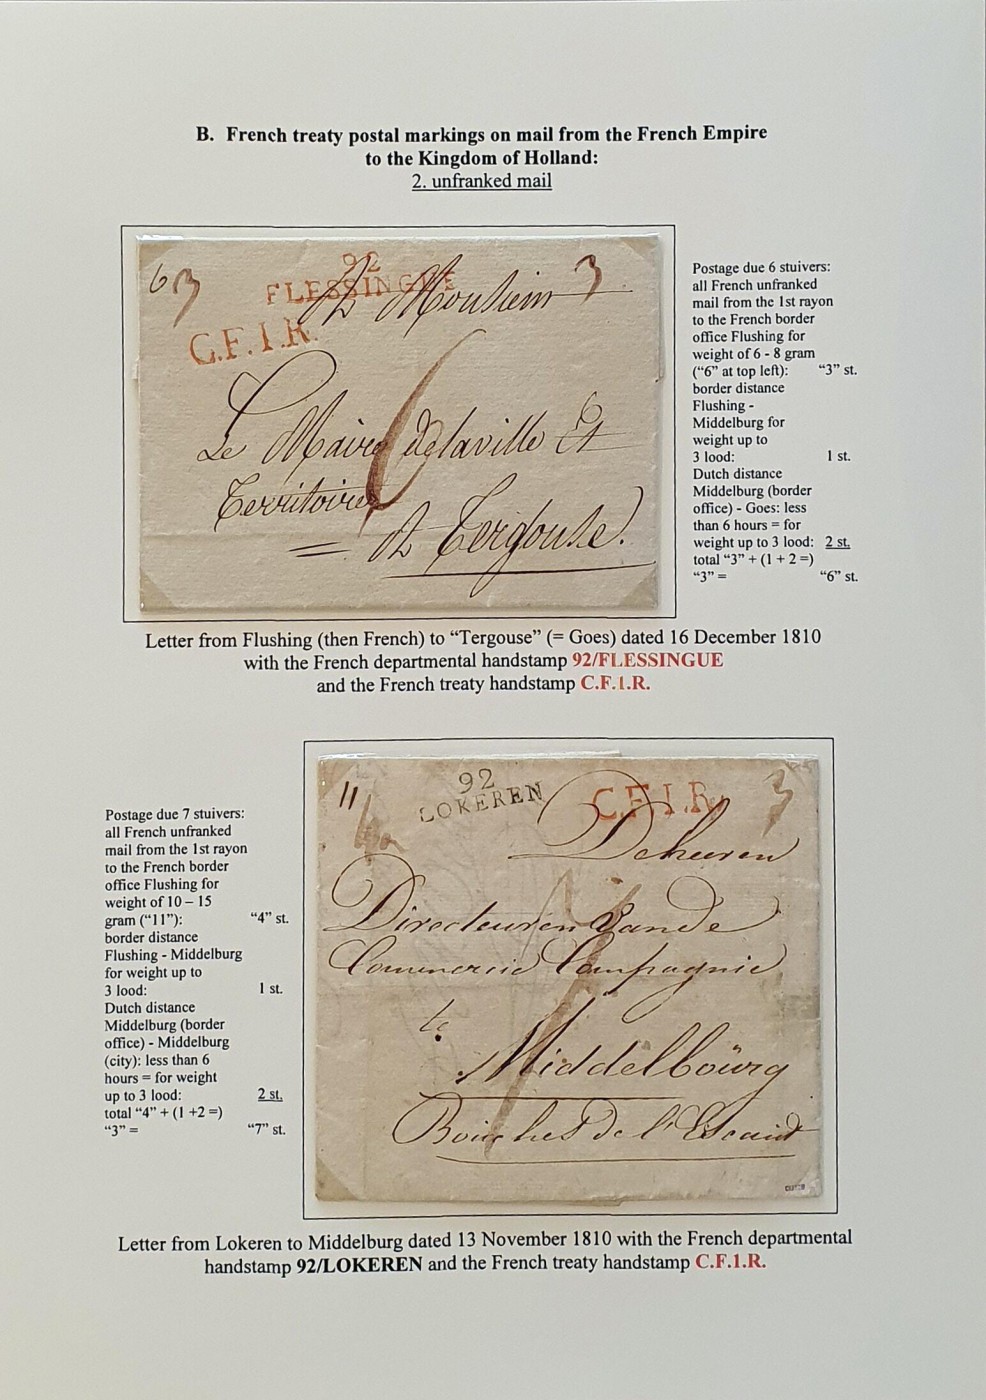 B. French treaty postal markings on mail from the French Empire
to the Kingdom of Holland:
2. unfranked mail
92
FLESSINGUE
C.F.1.R.
6 3
3
A Monsieur
6
Le Maire de la ville Et
Territoire
= A Tergouse.
Postage due 6 stuivers:
all French unfranked
mail from the 1st rayon
to the French border
office Flushing for
weight of 6 - 8 gram
("6" at top left): "3" st.
border distance
Flushing -
Middelburg for
weight up to
3 lood: 1 st.
Dutch distance
Middelburg (border
office) - Goes: less
than 6 hours = for
weight up to 3 lood: 2 st.
total "3" + (1 + 2 =)
"3" = "6" st.
Letter from Flushing (then French) to "Tergouse" (= Goes) dated 16 December 1810
with the French departmental handstamp 92/FLESSINGUE
and the French treaty handstamp C.F.1.R.
Postage due 7 stuivers:
all French unfranked
mail from the 1st rayon
to the French border
office Flushing for
weight of 10 – 15
gram ("11"): "4" st.
border distance
Flushing - Middelburg
for weight up to
3 lood: 1 st.
Dutch distance
Middelburg (border
office) - Middelburg
(city): less than 6
hours = for weight
up to 3 lood: 2 st.
total "4" + (1 +2 =)
"3" = "7" st.
11
92
LOKEREN
C.F.1.R.
3
De heeren
Directeuren Van de
Commercie Compagnie
te
Middelbürg
Bouches de l'Escaut
Letter from Lokeren to Middelburg dated 13 November 1810 with the French departmental
handstamp 92/LOKEREN and the French treaty handstamp C.F.1.R.